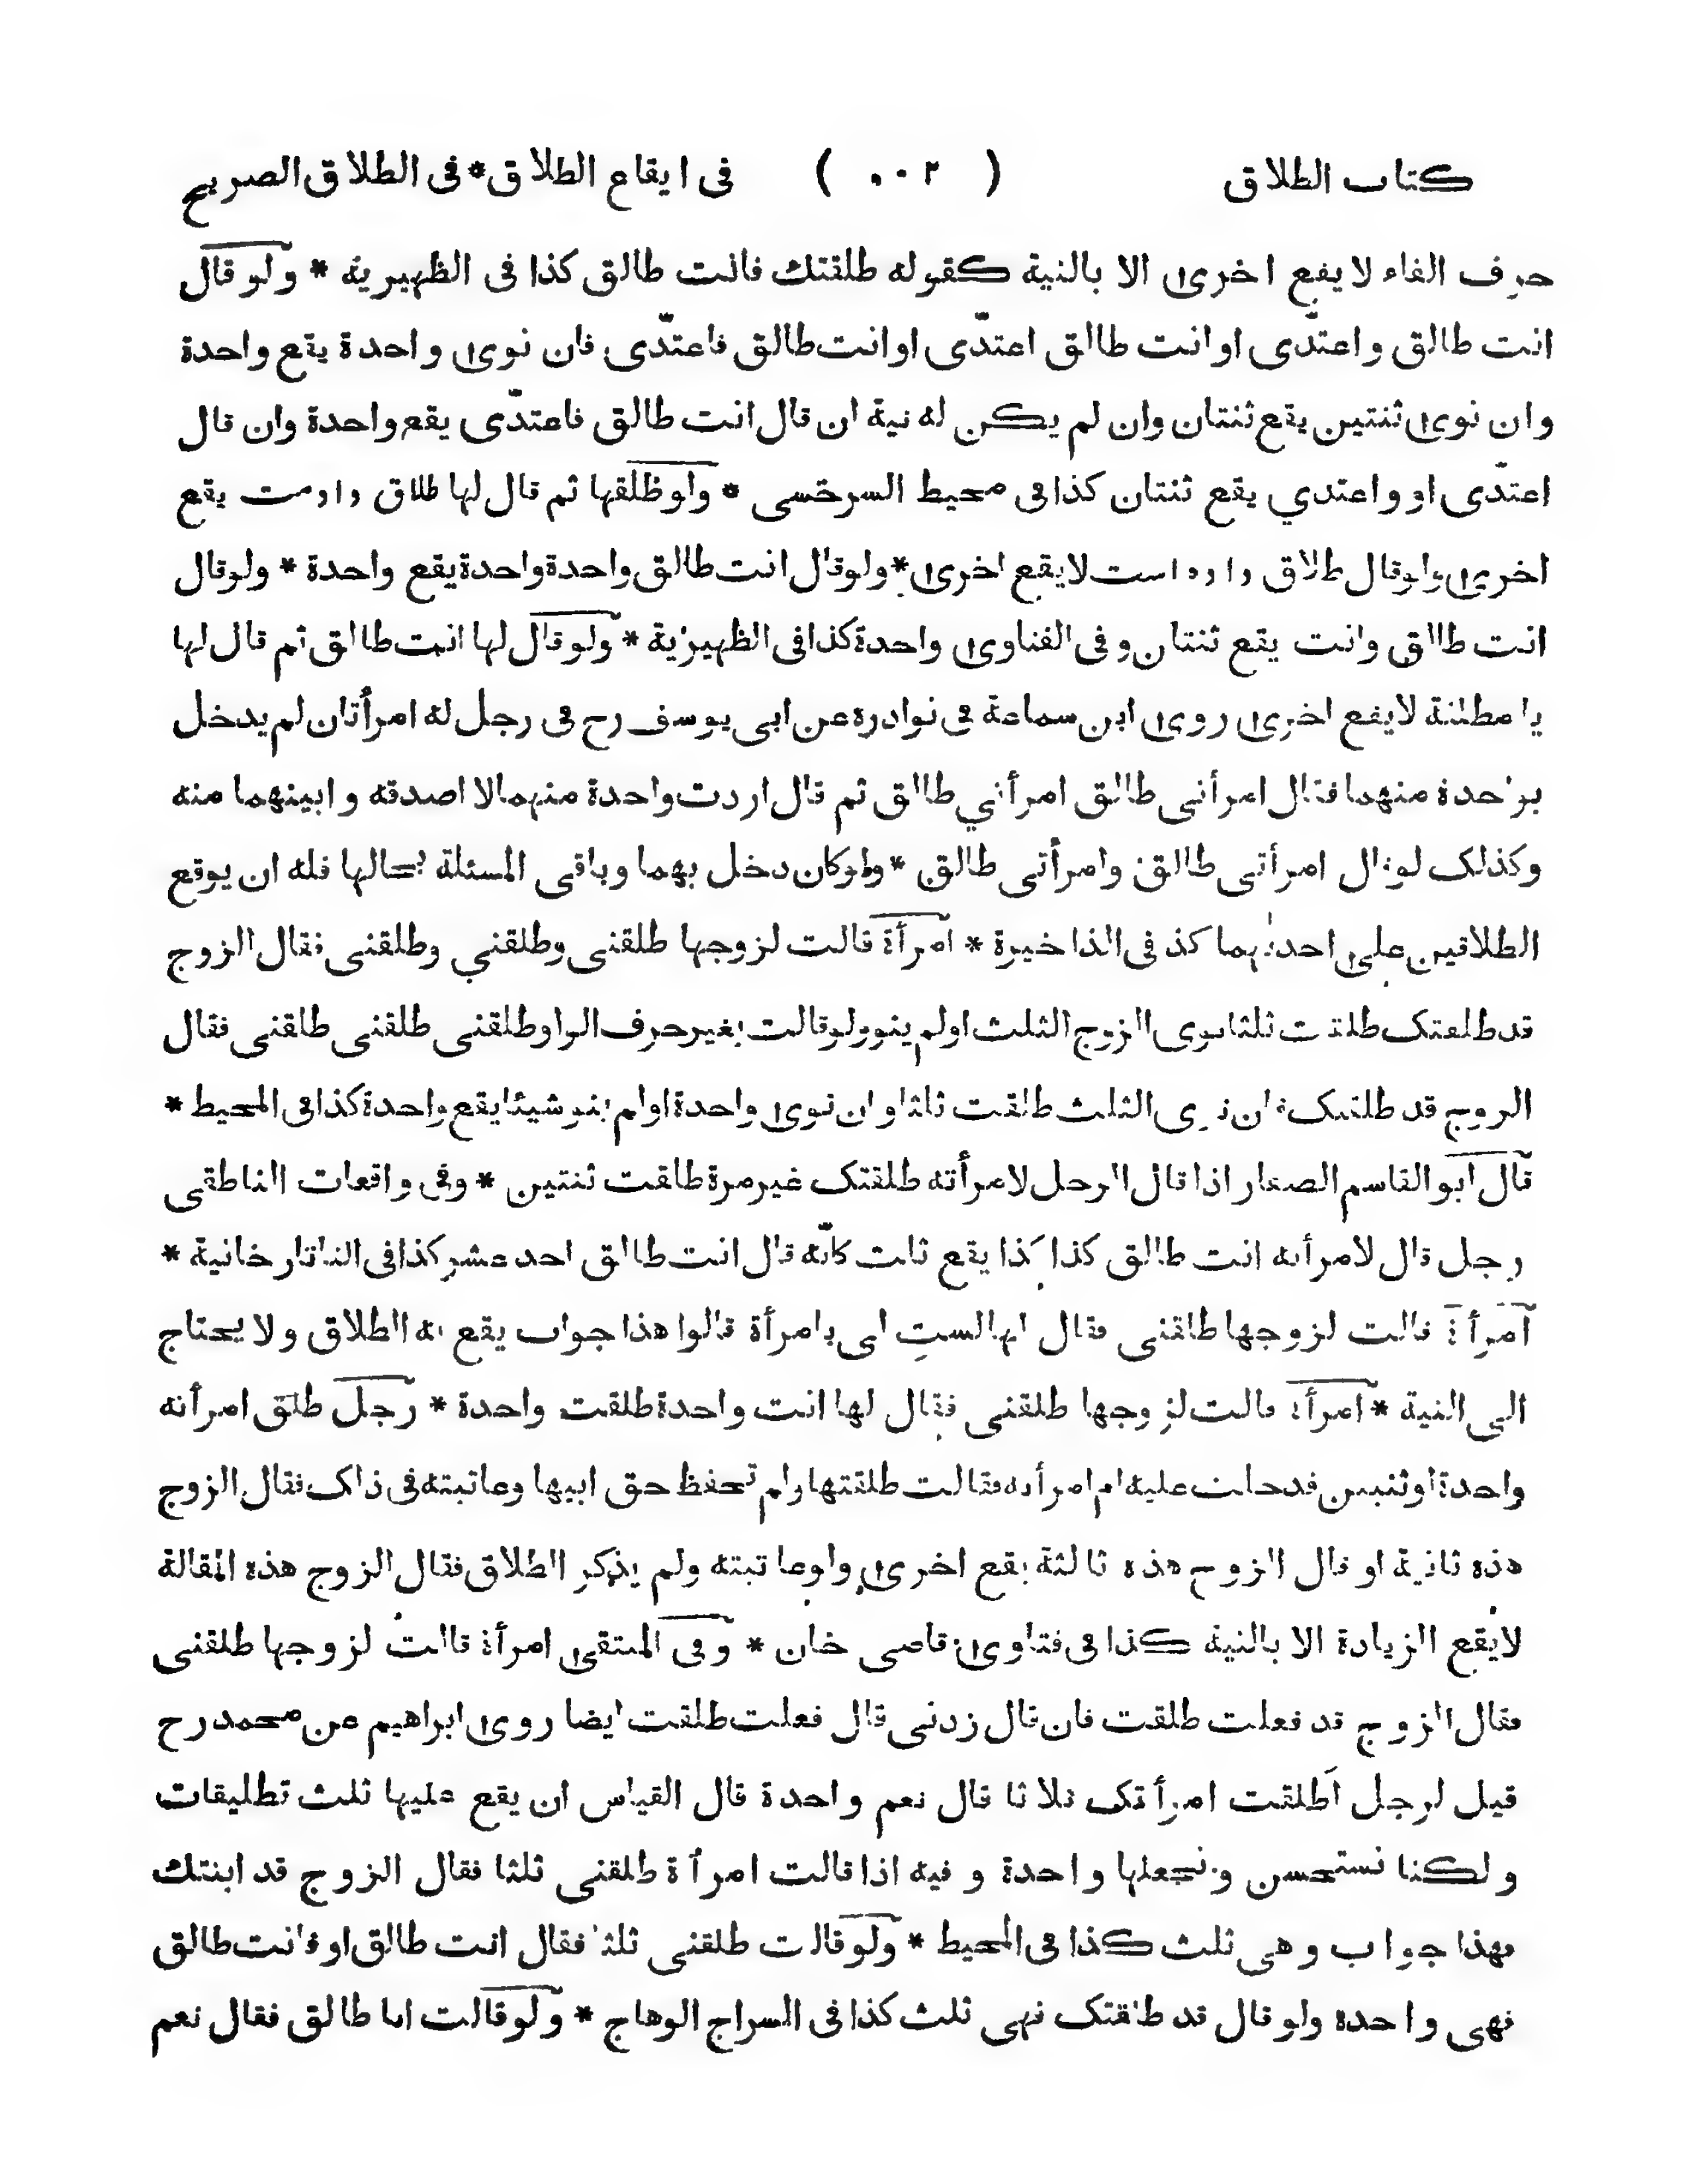 كتاب الطلاق ( ٥٠٢ ) فى ايقاع الطلاق * فى الطلاق الصريح
حرف الفاء لا يقع اخرى الا بالنية كقوله طلقتك فانت طالق كذا فى الظهيرية * ولو قال
انت طالق و اعتدّى او انت طالق اعتدّى او انت طالق فاعتدّى فان نوى واحدة يقع واحدة
و ان نوى ثنتين يقع ثنتان وان لم يكن له نية ان قال انت طالق فاعتدّى يقع واحدة وان قال
اعتدّى او واعتدي يقع ثنتان كذا فى محيط السرخسى * ولو طلقها ثم قال لها طلاق دادمت يقع
اخرى ولو قال طلاق داده است لا يقع اخرى * ولو قال انت طالق واحدة واحدة يقع واحدة * ولو قال
انت طالق وانت يقع ثنتان و فى الفتاوى واحدة كذا فى الظهيرية * ولو قال لها انت طالق ثم قال لها
يا مطلقة لا يقع اخرى روى ابن سماعة فى نوادره عن ابى يوسف رح فى رجل له امرأتان لم يدخل
بواحدة منهما فقال امرأتى طالق امرأتي طالق ثم قال اردت واحدة منهما لا اصدقه و ابينهما منه
وكذلك لو قال امرأتى طالق وامرأتى طالق * ولو كان دخل بهما وباقى المسئلة بحالها فله ان يوقع
الطلاقين على احدٰيهما كذ فى الذاخيرة * امرأة قالت لزوجها طلقنى وطلقني وطلقنى فقال الزوج
قد طلقتك طلقت ثلثا نوى الزوج الثلث اولم ينو ولو قالت بغير حرف الواو طلقنى طلقنى طلقنى فقال
الزوج قد طلقتك فان نوى الثلث طلقت ثلثا وان نوى واحدة اولم ينو شيئا يقع واحدة كذا فى المحيط *
قال ابو القاسم الصفار اذا قال الرجل لامرأته طلقتك غير مرة طلقت ثنتين * وفى واقعات الناطقى
رجل قال لامرأته انت طالق كذا كذا يقع ثلث كانّه قال انت طالق احد عشر كذا فى التاتارخانية *
امرأة قالت لزوجها طلقنى فقال لها لستِ لى بامرأة قالوا هذا جواب يقع به الطلاق ولا يحتاج
الى النية * امرأة قالت لزوجها طلقنى فقال لها انت واحدة طلقت واحدة * رجل طلق امرأته
واحدة او ثنتين فدخلت عليه ام امرأته فقالت طلقتها ولم تحفظ حق ابيها وعاتبته فى ذلك فقال الزوج
هذه ثانية او قال الزوج هذه ثالثة يقع اخرى ولو عاتبته ولم يذكر الطلاق فقال الزوج هذه المقالة
لا يقع الزيادة الا بالنية كذا فى فتاوى قاضى خان * وفى المنتقى امرأة قالت لزوجها طلقنى
فقال الزوج قد فعلت طلقت فان قال زدنى قال فعلت طلقت ايضا روى ابراهيم عن محمد رح
قيل لرجل اَطلقت امرأتك ثلاثا قال نعم واحدة قال القياس ان يقع عليها ثلث تطليقات
ولكنا نستحسن ونجعلها واحدة و فيه اذا قالت امرأة طلقنى ثلثا فقال الزوج قد ابنتك
فهذا جواب وهى ثلث كذا فى المحيط * ولو قالت طلقنى ثلثا فقال انت طالق او فانت طالق
فهى واحدة ولو قال قد طلقتك فهى ثلث كذا فى السراج الوهاج * ولو قالت انا طالق فقال نعم